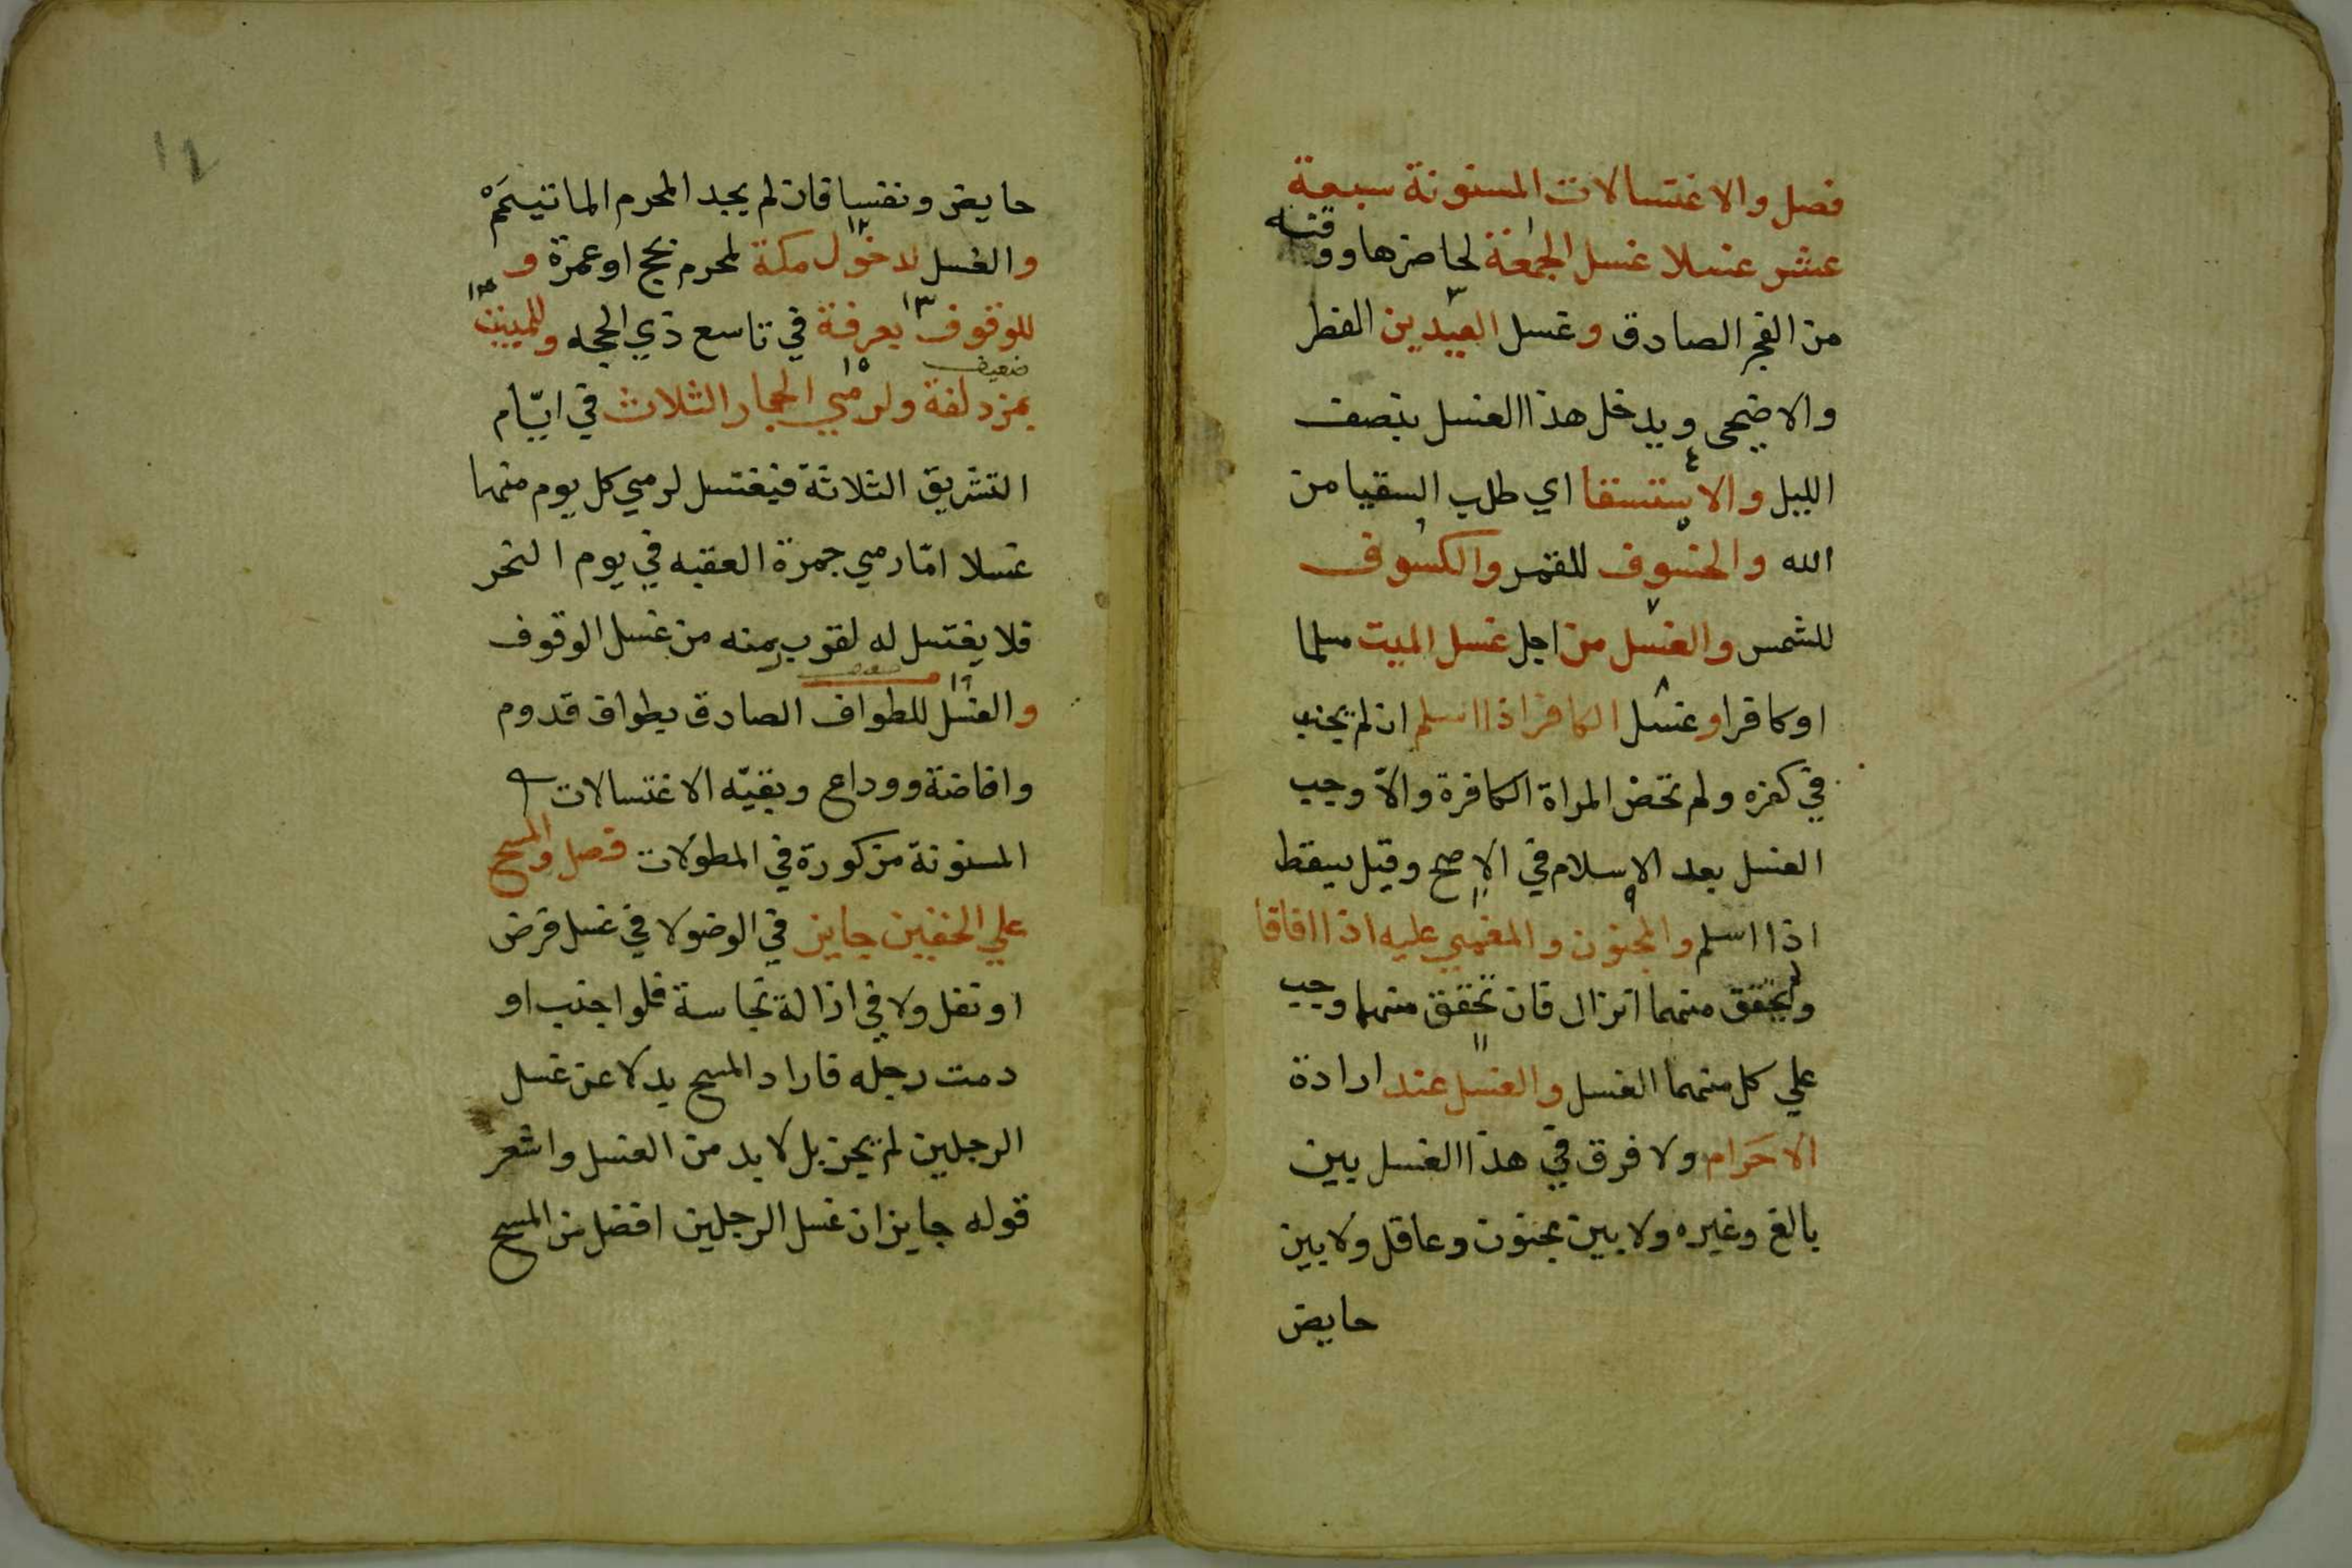 فصل والاغتسالات المسنونة سبعة
عشر غسلا غسل الجمعة لحاضرها ووقته
من الفجر الصادق وغسل العيدين الفطر
والاضحى ويدخل هذا الغسل بنصف
الليل والاستسقا اي طلب السقيا من
الله والخسوف للقمر والكسوف
للشمس والغسل من اجل غسل الميت مسلما
او كافرا وغسل الكافر اذا اسلم ان لم يجنب
في كفره ولم تحض المراة الكافرة والّا وجب
الغسل بعد الاسلام في الاصح وقيل يسقط
اذا اسلم والمجنون والمغمي عليه اذا افاقا
ولم يتحقق منهما انزال فان تحقق منهما وجب
علي كل منهما الغسل والغسل عند ارادة
الاحرام ولا فرق في هذا الغسل بين
بالغ وغيره ولا بين مجنون وعاقل ولا بين
حايض
١٢
حايض ونفسا فان لم يجد المحرم الما تيمم
والغسل لدخول مكة لمحرم بحج او عمرة و
للوقوف بعرفة في تاسع ذي الحجه وللمبيت
ضعيف
بمزدلفة ولرمي الجمار الثلاث في ايّام
التشريق الثلاثة فيغتسل لرمي كل يوم منها
غسلا امّا رمي جمرة العقبه في يوم النحر
فلا يغتسل له لقرب منه من غسل الوقوف
والغسل للطواف الصادق بطواف قدوم
وافاضة ووداع وبقيّه الاغتسالات
المسنونة مذكورة في المطولات فصل والمسح
علي الخفين جايز في الوضو لا في غسل فرض
او نفل ولا في ازالة نجاسة فلو اجنب او
دمت رجله فاراد المسح بدلا عن غسل
الرجلين لم يجز بل لا بد من الغسل واشعر
قوله جايز ان غسل الرجلين افضل من المسح